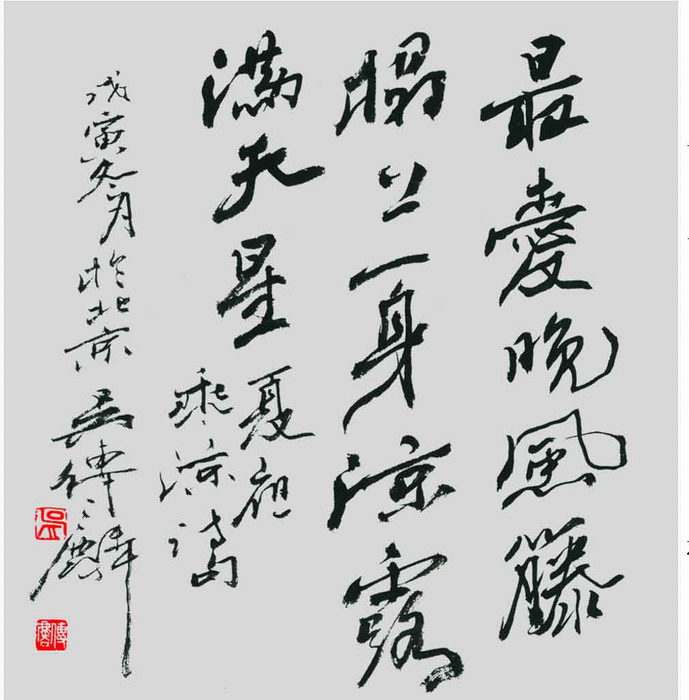 最愛晚風籐
榻上一身涼露
滿天星
夏
乘涼
戊寅冬月於北京吳傳麟
吳
傳麟